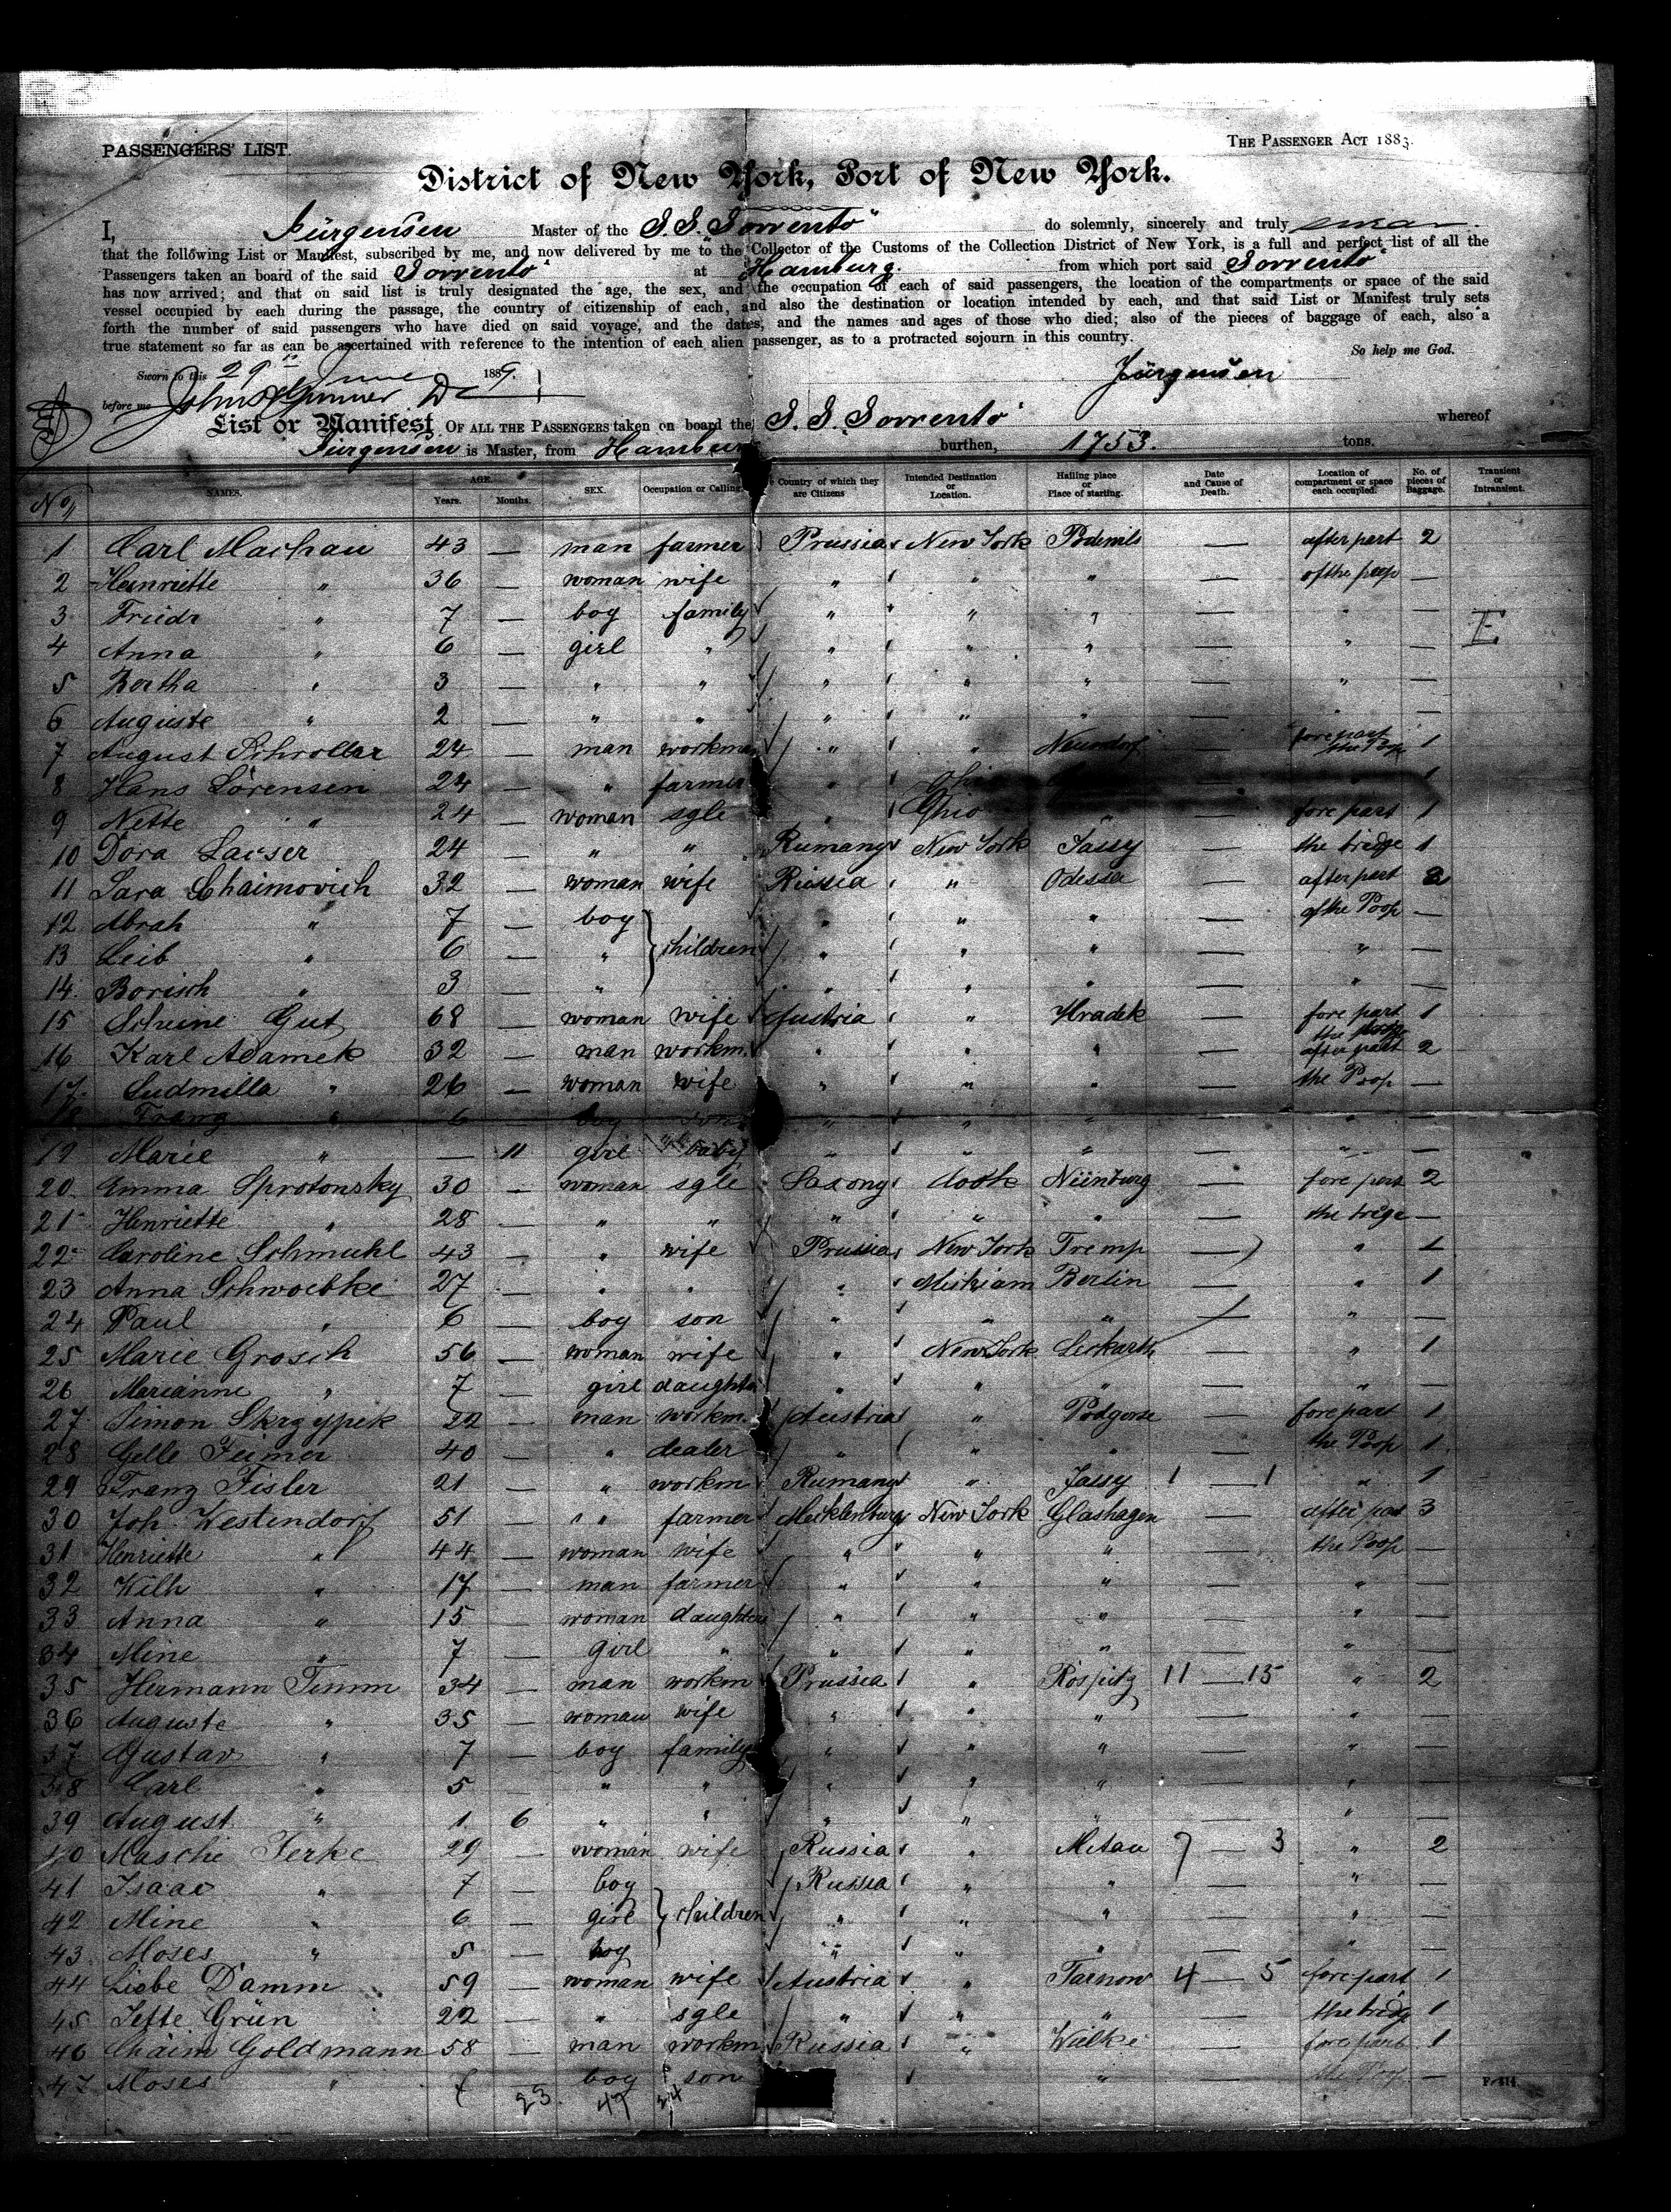 PASSENGERS' LIST.
THE PASSENGER ACT 1883.
District of New York, Port of New York.
I, Jürgensen Master of the S.S. "Sorrento" do solemnly, sincerely and truly swear
that the following List or Manifest, subscribed by me, and now delivered by me to the Collector of the Customs of the Collection District of New York, is a full and perfect list of all the
Passengers taken an board of the said "Sorrento" at Hamburg. from which port said "Sorrento"
has now arrived; and that on said list is truly designated the age, the sex, and the occupation of each of said passengers, the location of the compartments or space of the said
vessel occupied by each during the passage, the country of citizenship of each, and also the destination or location intended by each, and that said List or Manifest truly sets
forth the number of said passengers who have died on said voyage, and the dates, and the names and ages of those who died; also of the pieces of baggage of each, also a
true statement so far as can be ascertained with reference to the intention of each alien passenger, as to a protracted sojourn in this country.
So help me God.
Sworn to this 29th June 1889.
Jürgensen
before me
List or Manifest OF ALL THE PASSENGERS taken on board the S.S. Sorrento whereof
Jürgensen is Master, from Hamburg burthen, 1753. tons.
No, NAMES. AGE. Years. Months. SEX. Occupation or Calling. Country of which they are Citizens Intended Destination or Location. Hailing place or Place of starting. Date and Cause of Death. Location of compartment or space each occupied. No. of pieces of Baggage. Transient or Intransient.
1 Carl Machau 43 — man farmer Prussia New York Podewils — after part 2
2 Henriette " 36 — woman wife " " " — of the poop —
3 Friedr " 7 — boy family " " " — " — E
4 Anna " 6 — girl " " " " — " —
5 Bertha " 3 — " " " " " — " —
6 Auguste " 2 — " " " " — " —
7 August Schroller 24 — man workman " " Neuendorf — fore part the Poop 1
8 Hans Sörensen 24 — " farmer " Ohio — 1
9 Nette " 24 — woman sgle " Ohio " — fore part 1
10 Dora Lacser 24 — " " Rumany New York Jassy — the bridge 1
11 Sara Chaimovich 32 — woman wife Russia " Odessa — after part 2
12 Abrah " 7 — boy " " " — of the Poop —
13 Leib " 6 — " children " " " — " —
14. Borisch " 3 — " " " " — " —
15 Scheine Gut 68 — woman wife Austria " Hradek — fore part 1
16 Karl Adamek 32 — man workm. " " " — after part 2
17. Ludmilla " 26 — woman wife " " " — the Poop —
18 Franz " 6 boy son " " " "
19 Marie " — 11 girl baby " " " — " —
20. Emma Sprotonsky 30 — woman sgle Saxony Nürnburg — fore part 2
21 Henriette " 28 — " " " " " — the brige —
22 Caroline Schmuhl 43 — " wife Prussia New York Tremp — "
23 Anna Schwoebke 27 — " " " Michiam Berlin — " 1
24 Paul " 6 — boy son " " " — " —
25 Marie Grosch 56 — woman wife " New York — " 1
26 Marianne " 7 — girl daughter " " " — " —
27 Simon Skrzypek 22 — man workm. Austria " Podgorse — fore part 1
28 Gelle Feimer 40 — " dealer " " " — the Poop 1
29 Franz Fisler 21 — " workm Rumany " Jassy 1 — 1 " 1
30 Joh. Westendorf 51 — " farmer Mecklenburg New York Glashagen — after part 3
31 Henriette " 44 — woman wife " " " — the Poop —
32 Wilh " 17 — man farmer " " " — " —
33 Anna " 15 — woman daughter " " " — " —
34 Mine " 7 — girl " " " " — " —
35 Hermann Timm 34 — man workm Prussia " Rospitz 11 — 15 " 2
36 Auguste " 35 — woman wife " " " — " —
37 Gustav " 7 — boy family " " " — " —
38 Carl " 5 — " " " " " — " —
39 August " 1 6 " " " " " — " —
40 Masche Ferke 29 — woman wife Russia " Mitau 7 — 3 " 2
41 Isaac " 7 — boy Russia " " — " —
42 Mine " 6 — girl children " " " — " —
43. Moses " 5 — boy " " " — " —
44 Liebe Damm 59 — woman wife Austria " Tarnow 4 — 5 fore part 1
45 Jette Grün 22 — " sgle " " " — the bridge 1
46 Chaim Goldmann 58 — man workm Russia " Wilke — fore part 1
47 Moses " — boy son " — the Poop —
23 47 24
F. 414